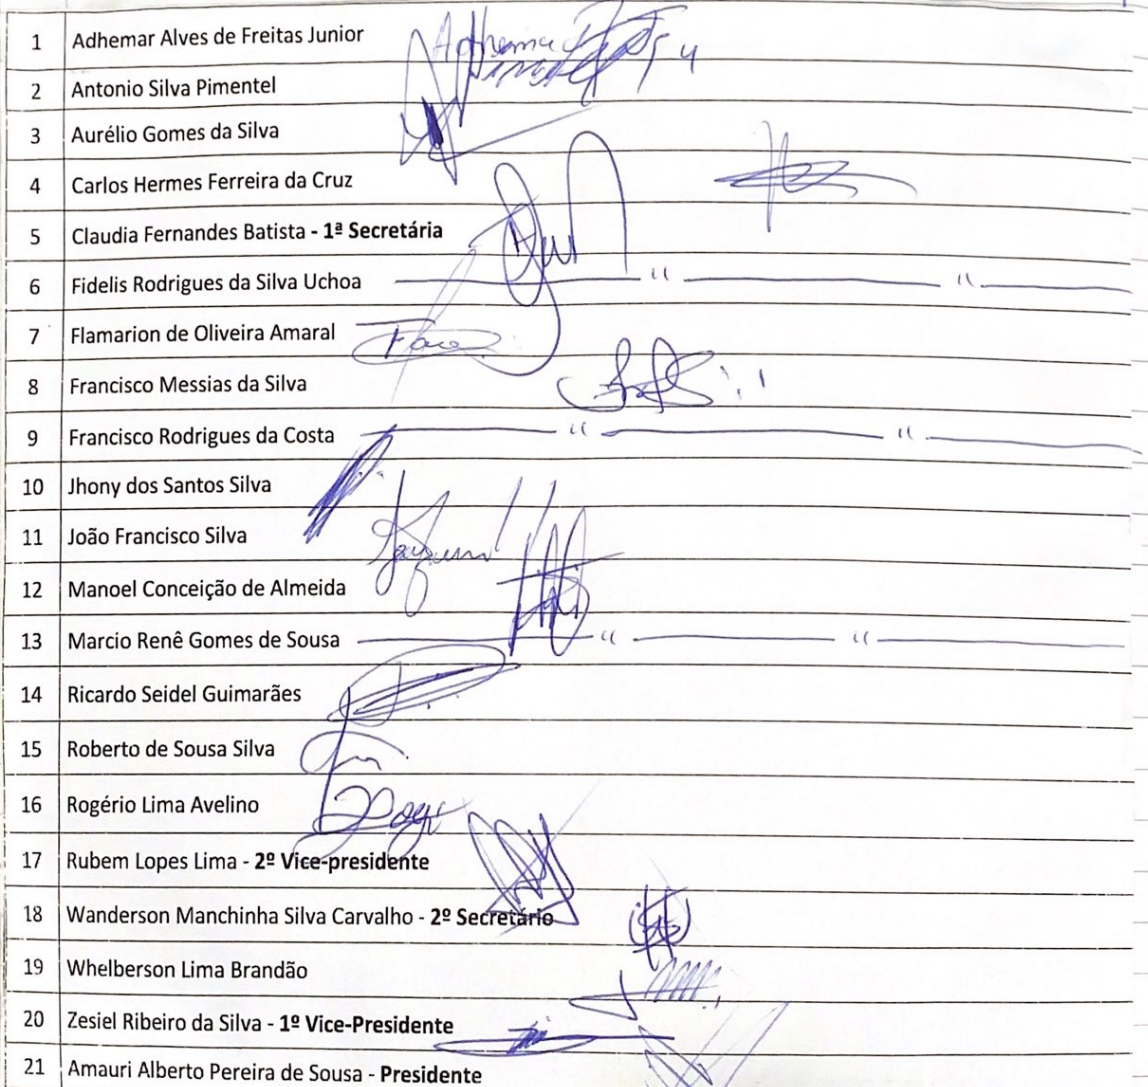 1 Adhemar Alves de Freitas Junior Adhemar
2 Antonio Silva Pimentel
3 Aurélio Gomes da Silva
4 Carlos Hermes Ferreira da Cruz
5 Claudia Fernandes Batista - 1ª Secretária
6 Fidelis Rodrigues da Silva Uchoa — " — " —
7 Flamarion de Oliveira Amaral
8 Francisco Messias da Silva
9 Francisco Rodrigues da Costa — " — " —
10 Jhony dos Santos Silva
11 João Francisco Silva
12 Manoel Conceição de Almeida
13 Marcio Renê Gomes de Sousa — " — " —
14 Ricardo Seidel Guimarães
15 Roberto de Sousa Silva
16 Rogério Lima Avelino
17 Rubem Lopes Lima - 2º Vice-presidente
18 Wanderson Manchinha Silva Carvalho - 2º Secretário
19 Whelberson Lima Brandão
20 Zesiel Ribeiro da Silva - 1º Vice-Presidente
21 Amauri Alberto Pereira de Sousa - Presidente